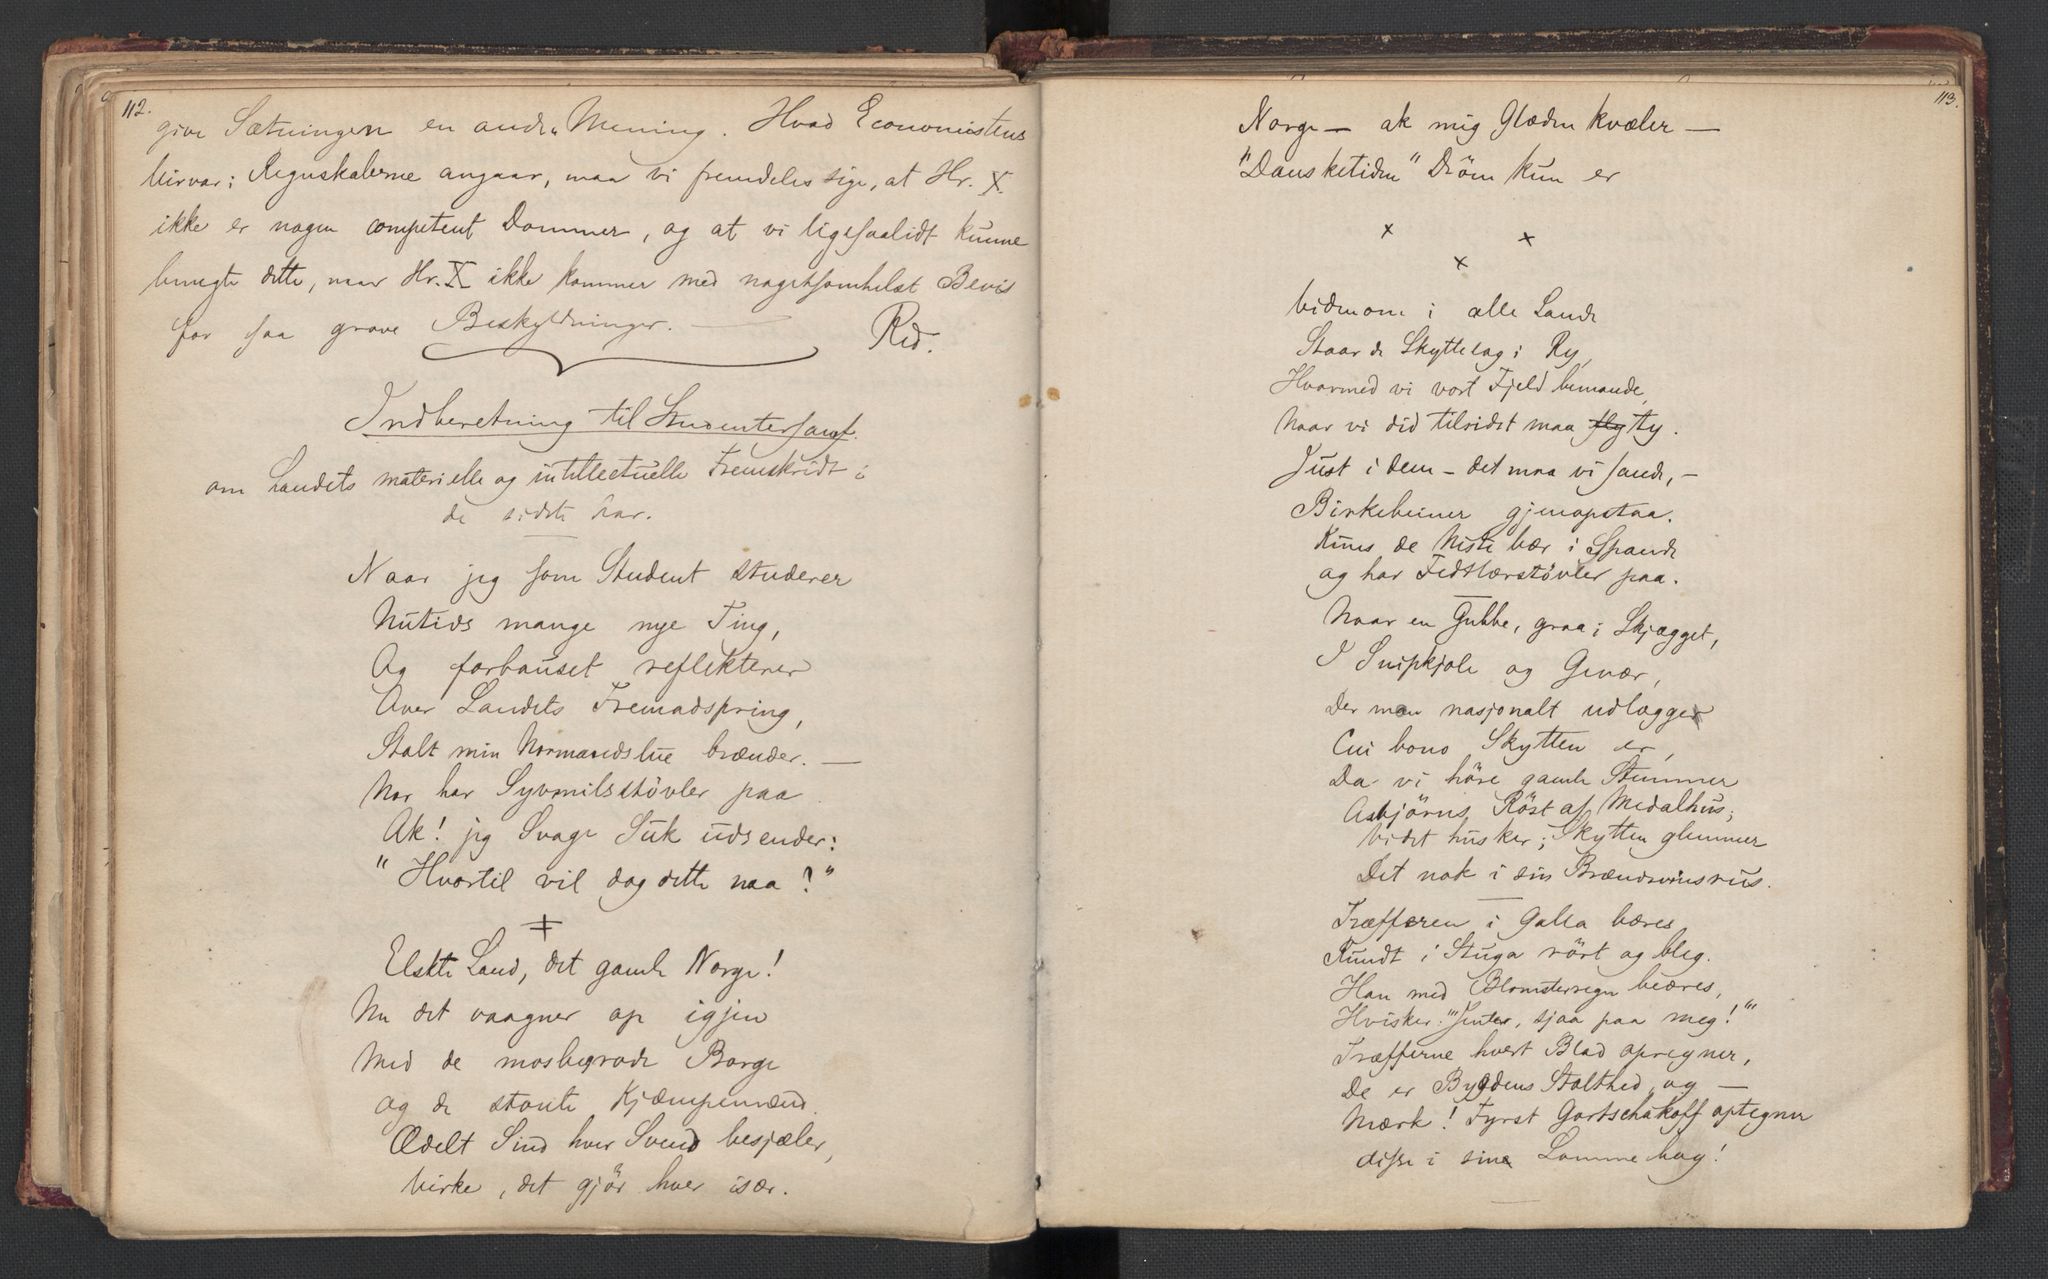 112.
give Sætningen en anden Mening. Hvad Economiistens
Virvar i Regnskaberne angaar, maa vi fremdeles sige, at Hr. X.
ikke er nogen competent Dommer, og at vi ligesaalidt kunne
benegte dette, naar Hr. X ikke kommer med nogetsomhelst Bevis
for saa grove Beskyldninger. — Red.
Indberetning til Studentersamf.
om Landets materielle og intellectuelle Fremskridt i
de sidste Aar.
Naar jeg som Student studerer
Nutids mange nye Ting,
Og forbauset reflekterer
Over Landets Fremadspring,
Stolt min Normandslue brænder. —
Nor har Syvmilsstøvler paa
Ak! jeg Svage Suk udsender:
"Hvortil vil dog dette naa?"
Elskte Land, det gamle Norge!
Nu det vaagner op igjen
Med de mosbegrode Borge
og de stoute Kjæmpemænd.
Ædelt Sind hver Svend besjæler,
Virke, det gjör hver især.
113.
Norge — ak mig Glæden kvæler —
"Dansketiden" Dröm kun er
x x
x
Videnom i alle Lande
Staar de Skyttelag i Ry,
Hvormed vi vort Fjeld bemande,
Naar vi did tilsidst maa fly ty.
Just i dem – det maa vi sande, –
Birkebeiner gjenopstaa.
Kuns de Niste bær i Spande
og har Fedtlærstövler paa.
Naar en Gubbe, graa i Skjægget,
I Snipkjole og Gevær,
Der man nasjonalt udlægger
Cui bono Skytten er,
Da vi höre gamle Stemmer
Asbjörns Röst af Medalhus;
Vi det husker; Skytten glemmer
Det nok i sin Brændevinsrus.
Træfferen i Galla bæres
Rundt i Stuga rört og bleg.
Han med Blomsterregn beæres,
Hvisker: "Jenter, sjaa paa meg!"
Træfferne hvert Blad opregner,
De er Bygdens Stolthed, og —
Mærk! Fyrst Gortschakoff optegner
disse i sine Lommebog!